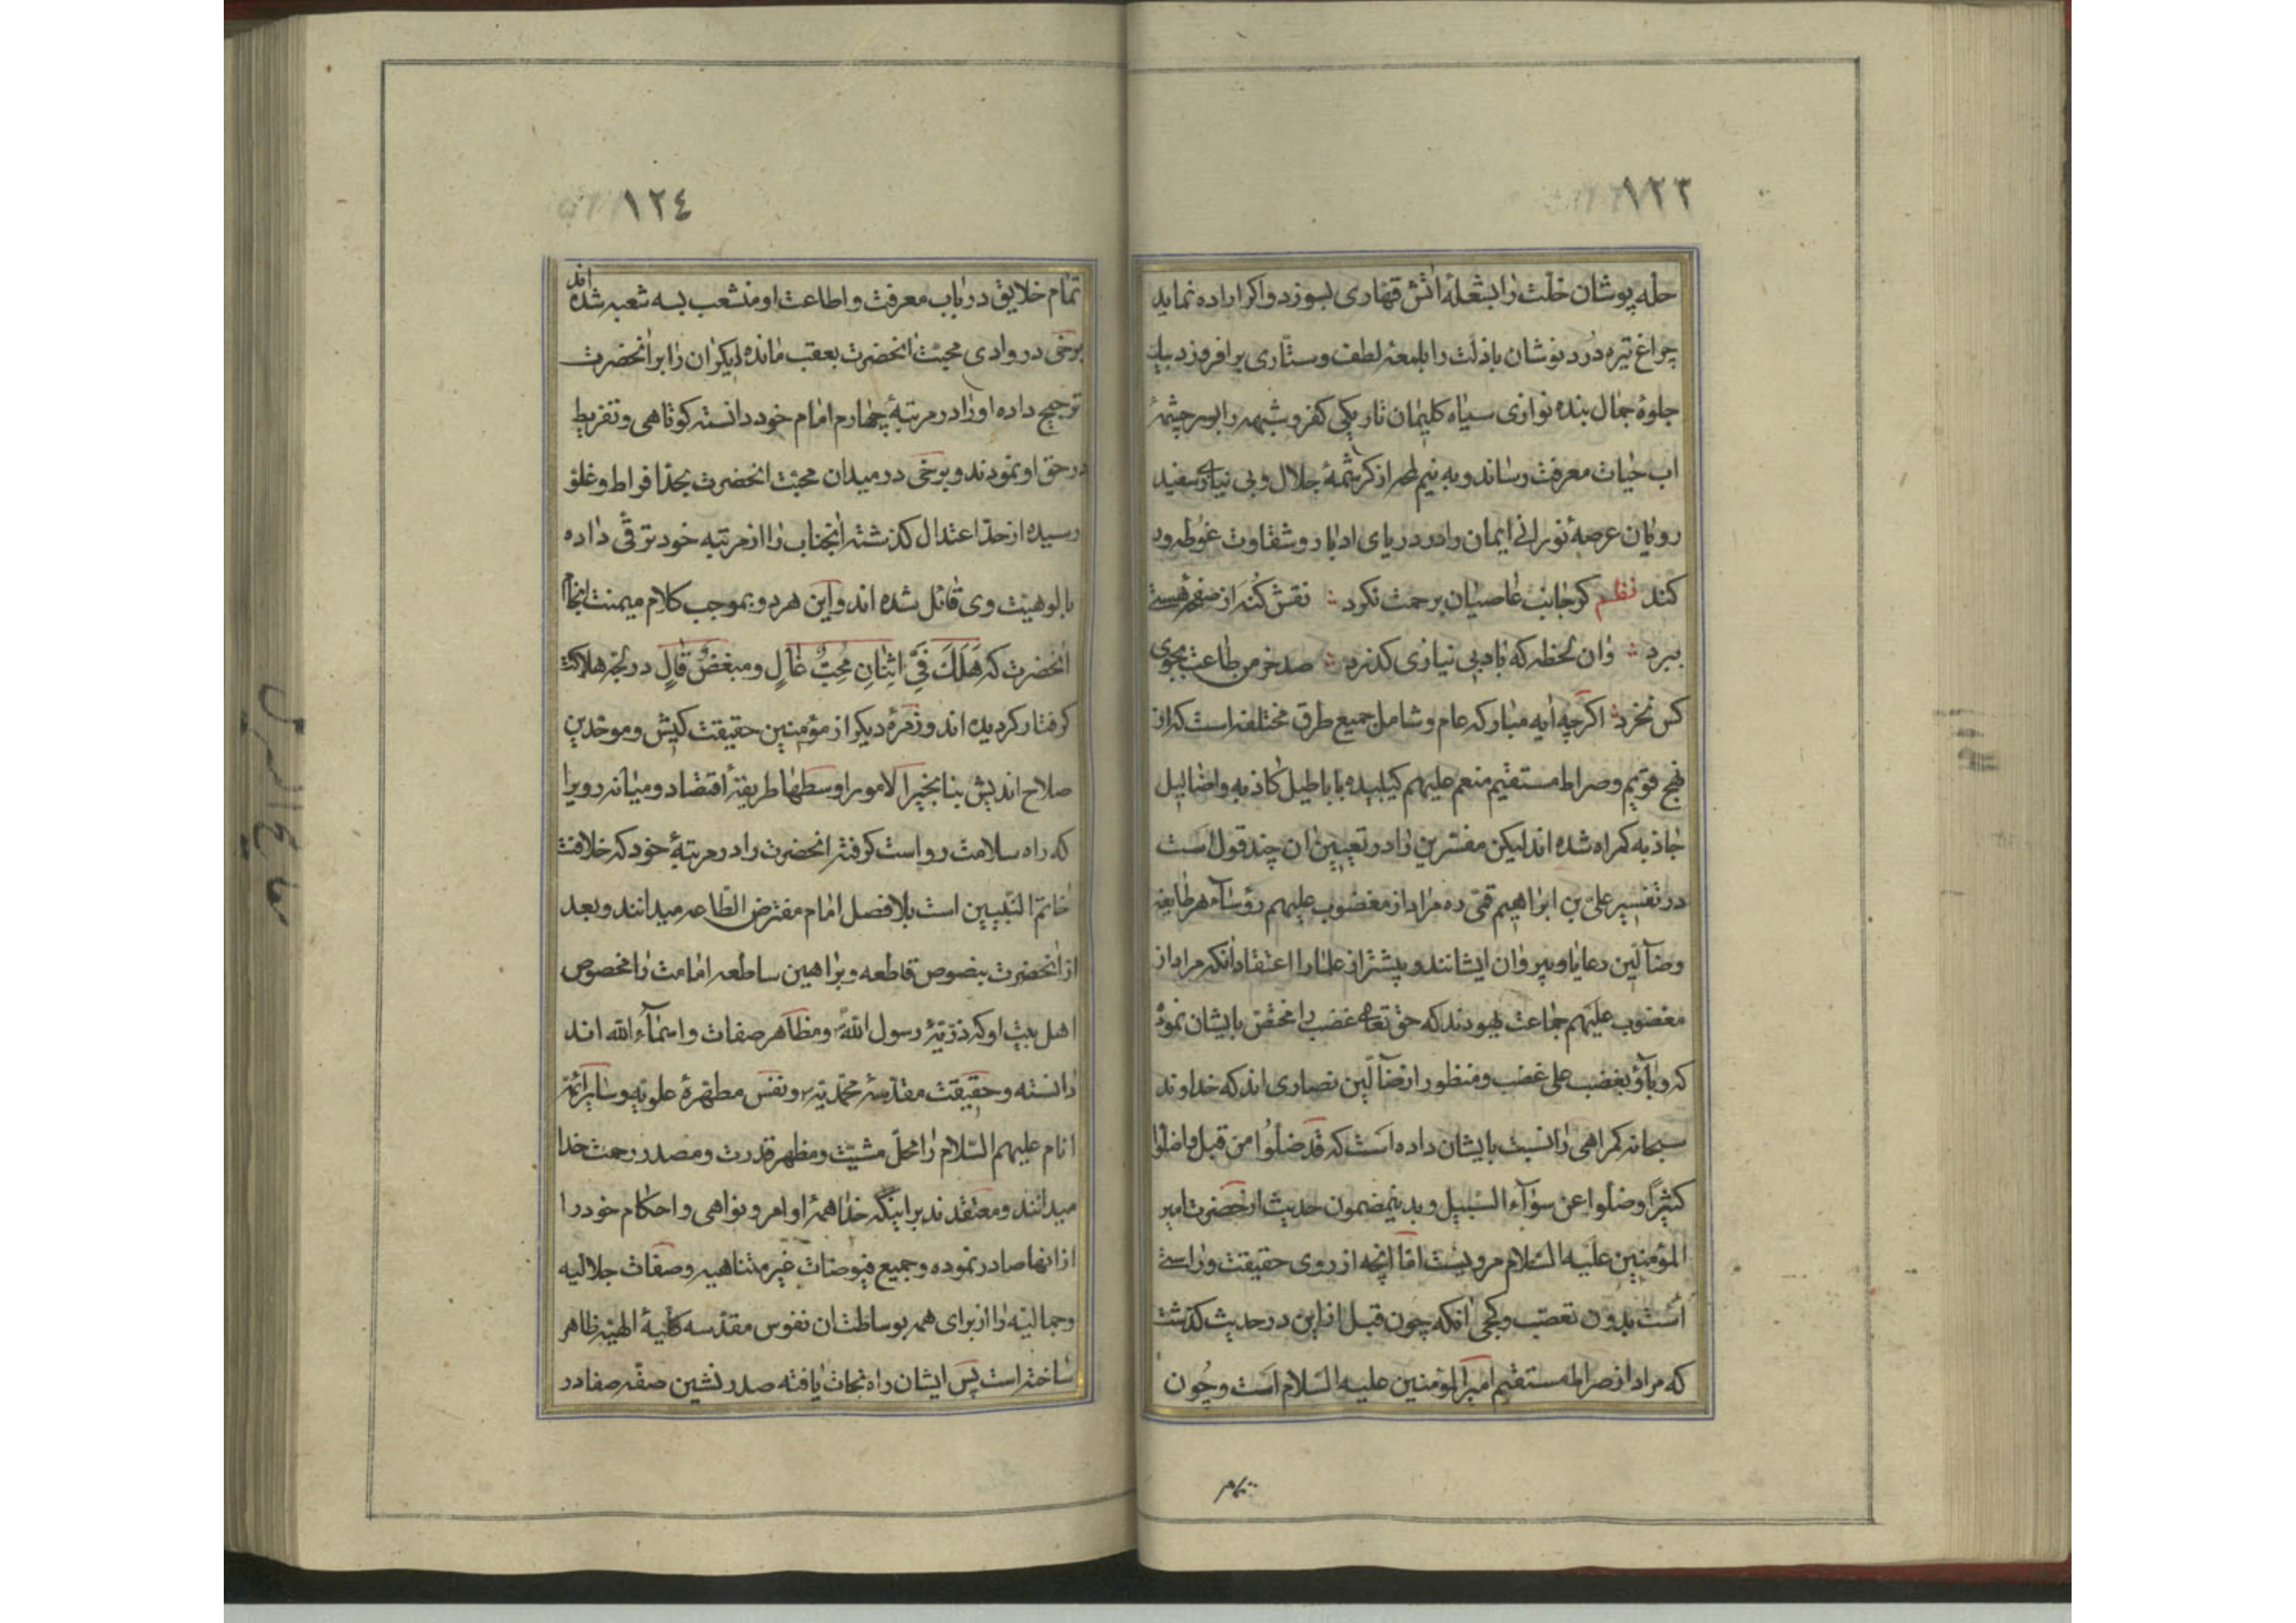 ١٢٣
حله پوشان خلّت را بشعلهٔ اتش قهاری بسوزد واکر اراده نماید
چراغ تیره دُرد نوشان باذلت را بلمعهٔ لطف وستّاری برافروزد بیک
جلوهٔ جمال بنده نوازی سیاه کلیمان تاریکی کفر وشبهه را بسرچشمهٔ
اب حیات معرفت رساند وبه نیم لمحه از کرشمهٔ جلال وبی نیازی سفید
رویان عرصهٔ نورانی ایمان را در دریای ادبار وشقاوت غوطه ور
کند نظم کر جانب عاصیان برحمت نکرد ∴ نقش کنه از صفحهٔ هستی
ببرد ∴ وان لحظه که باد بی نیازی کذرد ∴ صد خرمن طاعت بجوی
کس نخرد ∴ اکرچه ایه مبارکه عام وشامل جمیع طرق مختلفه است که از
نهج قویم وصراط مستقیم منعم علیهم باباطیل کاذبه واضالیل
جاذبه کمراه شده اند لیکن مفسّرین را در تعیین ان چند قول است
در تفسیر علیّ بن ابراهیم قمّی ره مراد از مغضوب علیهم رؤساء هر طایفه
وضآلّین رعایا وپیروان ایشانند وبیشتر از علما را اعتقاد انکه مراد از
مغضوب علیهم جماعت یهودند که حق تعالی غضب را مختصّ بایشان نموده
که وبآؤ بغضب علی غضب ومنظور از ضآلّین نصاری اند که خداوند
سبحانه کمراهی را نسبت بایشان داده است که قد ضلّوا من قبل واضلّوا
کثیرًا وضلّوا عن سوآء السّبیل وبدینمضمون حدیث از حضرت امیر
المؤمنین علیه السّلام مرویست امّا انچه از روی حقیقت وراستی
است بدون تعصّب وکجی انکه چون قبل از این در حدیث کذشت
که مراد از صراط مستقیم امیر المؤمنین علیه السّلام است وچون
تمام
١٢٤
تمام خلایق در باب معرفت واطاعت او منشعب بسه شعبه شده اند
برخی در وادی محبّت انحضرت بعقب مانده دیکران را بر انحضرت
ترجیح داده او را در مرتبهٔ چهارم امام خود دانسته کوتاهی وتفریط
در حق او نمودند وبرخی در میدان محبّت انحضرت بحدّ افراط وغلوّ
رسیده از حدّ اعتدال کذشته انجناب را از مرتبه خود ترقّی داده
بالوهیّت وی قائل شده اند واین هر دو بموجب کلام میمنت انجام
انحضرت که هَلَکَ فِیَّ اثنانِ مُحِبٌّ غالٍ ومبغضٌ قالٍ در لجّه هلاکت
کرفتار کردیده اند وزمرهٔ دیکر از مؤمنین حقیقت کیش وموحّدین
صلاح اندیش بنا بخیر الامور اوسطها طریقهٔ اقتصاد ومیانه روی را
که راه سلامت رو است کرفته انحضرت را در مرتبهٔ خود که خلافت
خاتم النّبیین است بلافصل امام مفترض الطّاعه میدانند وبعد
از انحضرت بنصوص قاطعه وبراهین ساطعه امامت را مخصوص
اهل بیت او که ذرّیّهٔ رسول اللّه ومظاهر صفات واسمآء اللّه اند
دانسته وحقیقت مقدّسهٔ محمّدیّه ونفس مطهّرهٔ علویّه وسایر ائمّهٔ
انام علیهم السّلام را محلّ مشیّت ومظهر قدرت ومصدر رحمت خدا
میدانند ومعتقدند بر اینکه خدا همهٔ اوامر ونواهی واحکام خود را
از انها صادر نموده وجمیع فیوضات غیر متناهیه وصفات جلالیه
وجمالیّه را از برای همه بوساطت ان نفوس مقدّسه کلّیهٔ الهیّه ظاهر
ساخته است پس ایشان راه نجات یافته صدر نشین صفّه صفا در